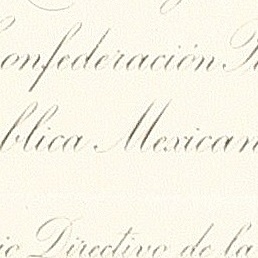 onfederación P
blica Mexican
io Directivo de la